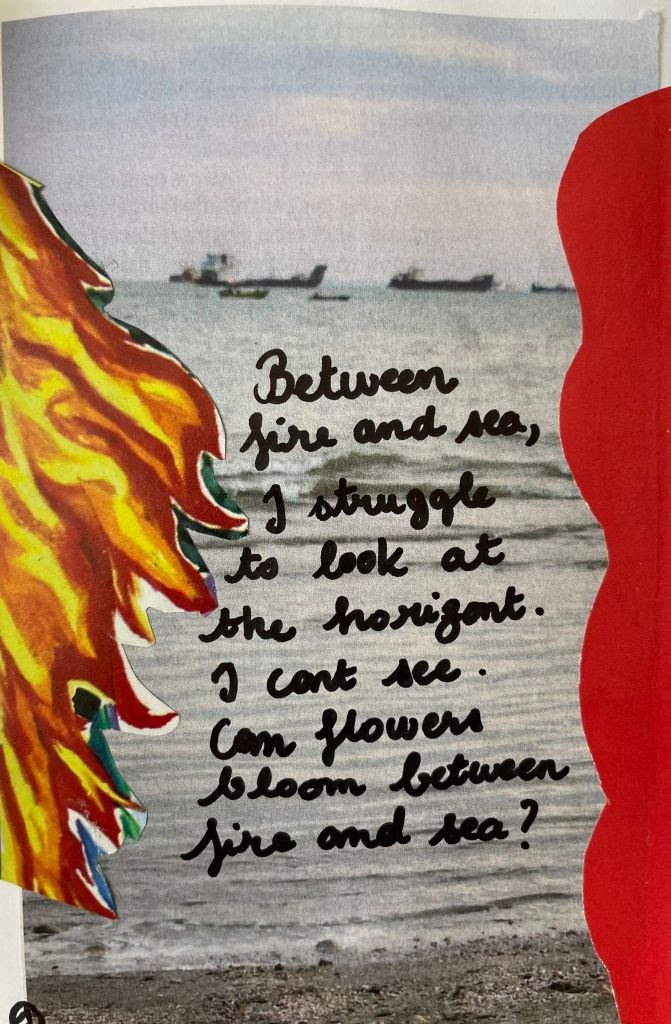 Between
fire and sea,
I struggle
to look at
the horizont.
I cant see.
Can flowers
bloom between
fire and sea?